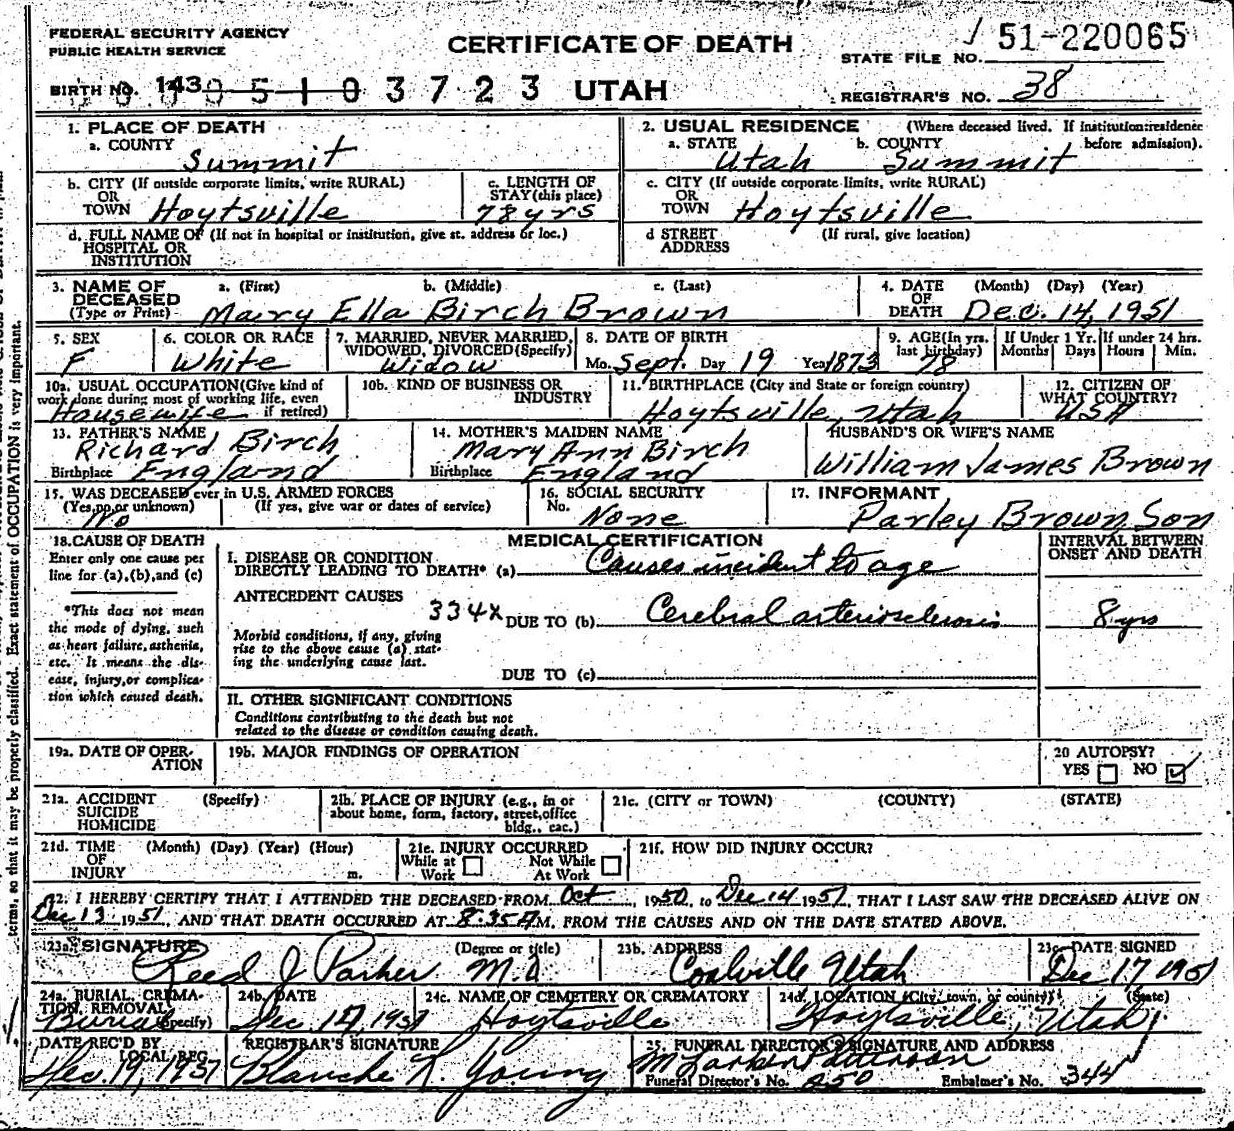 FEDERAL SECURITY AGENCY
PUBLIC HEALTH SERVICE
CERTIFICATE OF DEATH
STATE FILE NO. 51-220065
BIRTH NO. 143
0005103723 UTAH
REGISTRAR'S NO. 38
1. PLACE OF DEATH
a. COUNTY
Summit
2. USUAL RESIDENCE (Where deceased lived. If institution:residence before admission).
a. STATE Utah b. COUNTY Summit
b. CITY (If outside corporate limits, write RURAL)
OR
TOWN Hoytsville
c. LENGTH OF
STAY (this place)
78 yrs
c. CITY (If outside corporate limits, write RURAL)
OR
TOWN Hoytsville
d. FULL NAME OF (If not in hospital or institution, give st. address or loc.)
HOSPITAL OR
INSTITUTION
d STREET (If rural, give location)
ADDRESS
3. NAME OF DECEASED (Type or Print)
a. (First) b. (Middle) c. (Last)
Mary Ella Birch Brown
4. DATE OF DEATH (Month) (Day) (Year)
Dec. 14, 1951
5. SEX
F
6. COLOR OR RACE
White
7. MARRIED, NEVER MARRIED,
WIDOWED, DIVORCED (Specify)
Widow
8. DATE OF BIRTH
Mo. Sept. Day 19 Year 1873
9. AGE (In yrs. last birthday)
78
If Under 1 Yr.
Months Days
If under 24 hrs.
Hours Min.
10a. USUAL OCCUPATION (Give kind of
work done during most of working life, even
if retired)
Housewife
10b. KIND OF BUSINESS OR
INDUSTRY
11. BIRTHPLACE (City and State or foreign country)
Hoytsville, Utah
12. CITIZEN OF
WHAT COUNTRY?
USA
13. FATHER'S NAME
Richard Birch
Birthplace England
14. MOTHER'S MAIDEN NAME
Mary Ann Birch
Birthplace England
HUSBAND'S OR WIFE'S NAME
William James Brown
15. WAS DECEASED ever in U.S. ARMED FORCES
(Yes, no, or unknown) (If yes, give war or dates of service)
No
16. SOCIAL SECURITY
No. None
17. INFORMANT
Parley Brown, Son
18. CAUSE OF DEATH
Enter only one cause per
line for (a), (b), and (c)
*This does not mean
the mode of dying, such
as heart failure, asthenia,
etc. It means the dis-
ease, injury, or complica-
tion which caused death.
MEDICAL CERTIFICATION
INTERVAL BETWEEN
ONSET AND DEATH
I. DISEASE OR CONDITION
DIRECTLY LEADING TO DEATH* (a) Causes incident to age
ANTECEDENT CAUSES
334X DUE TO (b) Cerebral arteriosclerosis 8 yrs
Morbid conditions, if any, giving
rise to the above cause (a) stat-
ing the underlying cause last.
DUE TO (c)
II. OTHER SIGNIFICANT CONDITIONS
Conditions contributing to the death but not
related to the disease or condition causing death.
19a. DATE OF OPER-
ATION
19b. MAJOR FINDINGS OF OPERATION
20 AUTOPSY?
YES NO
21a. ACCIDENT (Specify)
SUICIDE
HOMICIDE
21b. PLACE OF INJURY (e.g., in or
about home, form, factory, street, office
bldg., eac.)
21c. (CITY or TOWN) (COUNTY) (STATE)
21d. TIME (Month) (Day) (Year) (Hour)
OF
INJURY m.
21e. INJURY OCCURRED
While at Work Not While At Work
21f. HOW DID INJURY OCCUR?
22. I HEREBY CERTIFY THAT I ATTENDED THE DECEASED FROM Oct, 1950, to Dec 14 1951, THAT I LAST SAW THE DECEASED ALIVE ON
Dec 13 1951 AND THAT DEATH OCCURRED AT 8:35 A M. FROM THE CAUSES AND ON THE DATE STATED ABOVE.
23a. SIGNATURE (Degree or title)
Reed J Parker M.D
23b. ADDRESS
Coalville Utah
23c. DATE SIGNED
Dec 17 1951
24a. BURIAL, CREMA-
TION, REMOVAL
(Specify)
Burial
24b. DATE
Dec. 17, 1951
24c. NAME OF CEMETERY OR CREMATORY
Hoytsville
24d. LOCATION (City, town, or county) (State)
Hoytsville, Utah
DATE REC'D BY
LOCAL REG.
Dec. 19, 1951
REGISTRAR'S SIGNATURE
Blanche R. Young
25. FUNERAL DIRECTOR'S SIGNATURE AND ADDRESS
M Larkin
Funeral Director's No. 250 Embalmer's No. 344
terms, so that it may be properly classified. Exact statement of OCCUPATION is very important.